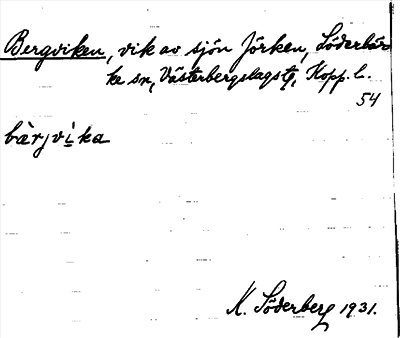 Bergviken, vik av sjön Jörken, Söderbär-
ke sn, Västerbergslags tg, Kopp. l.
54
bàrjvìka
K. Söderberg 1931.